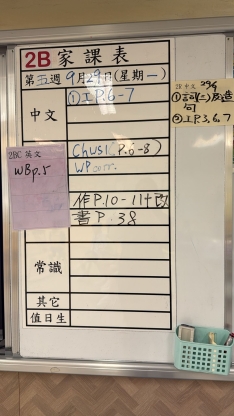 2B 家課表
第五週 9月29日(星期一)
中文
①工P.6-7
2B 中文 29/9
①詞(二)及造
句
②工P.3,6,7
2BC 英文
WB p.5
(P.6-8)
WP corr.
作P.10-11+改
書P.38
常識
其它
值日生